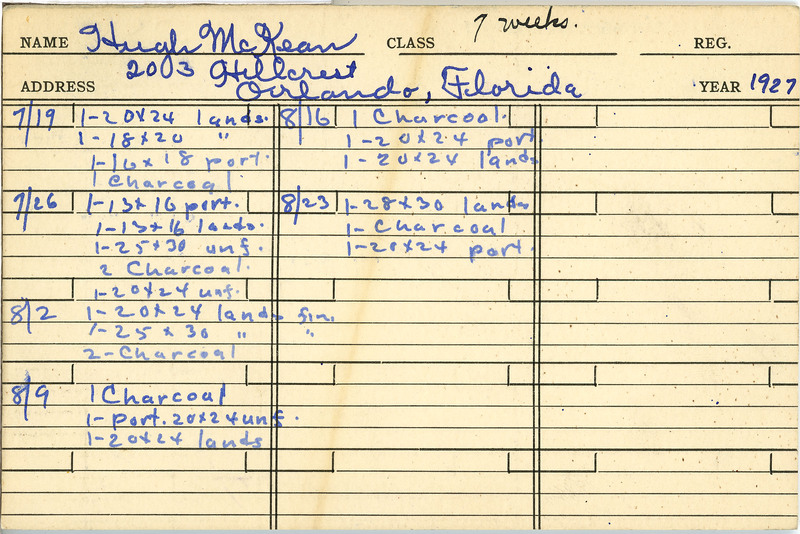 7 weeks.
NAME Hugh McKean CLASS REG.
ADDRESS 2003 Hillcrest
Orlando, Florida YEAR 1927
7/19 1-20x24 lands.
1-18x20 "
1-16x18 port.
1 Charcoal
7/26 1-13x16 port.
1-13x16 lands.
1-25x30 unf.
2 Charcoal.
1-20x24 unf.
8/2 1-20x24 lands fin.
1-25x30 " "
2-Charcoal
8/9 1 Charcoal
1-port. 20x24 unf.
1-20x24 lands
8/16 1 Charcoal.
1-20x24 port
1-20x24 lands
8/23 1-28x30 lands
1-Charcoal
1-20x24 port.